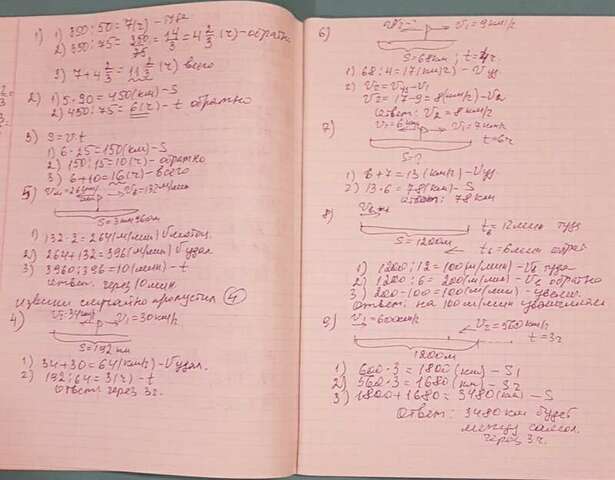 1) 1) 350:50=7(ч)-туда
2) 350:75=350/75=14/3=4 2/3 (ч)-обратно
3) 7+4 2/3=11 2/3 (ч) всего
2) 1) 5·90=450(км)-S
2) 450:75=6(ч)-t обратно
3) S=v·t
1) 6·25=150(км)-S
2) 150:15=10(ч)-обратно
3) 6+10=16(ч)-всего
5) V₂=132м/мин
S=3км960м
1) 132·2=264(м/мин) Vмотоц.
2) 264+132=396(м/мин) Vудал.
3) 3960:396=10(мин)-t
Ответ: через 10мин.
извини случайно пропустил 4
4) V₂=34км/ч V₁=30км/ч
S=192км
1) 34+30=64(км/ч)-Vудал.
2) 192:64=3(ч)-t
Ответ: через 3ч.
6) V₂-? V₁=9км/ч
S=68км; t=4ч
1) 68:4=17(км/ч)-Vуд
2) V₂=Vуд-V₁
V₂=17-9=8(км/ч)-V₂
Ответ: V₂=8км/ч
7) V₂=6км/ч V₁=7км/ч
t=6ч
S=?
1) 6+7=13(км/ч)-Vуд
2) 13·6=78(км)-S
Ответ: 78км
8) t₆=12мин туда
S=1200м
t₂=6мин обрат
1) 1200:12=100(м/мин)-V₁ туда
2) 1200:6=200(м/мин)-V₂ обратно
3) 200-100=100(м/мин)-увелич.
Ответ: на 100м/мин увеличили
9) V₁=600км/ч V₂=560км/ч
t=3ч
1200м
1) 600·3=1800(км)-S1
2) 560·3=1680(км)-
3) 1800+1680=3480(км)-S
Ответ: 3480км будет
между
через 3ч.